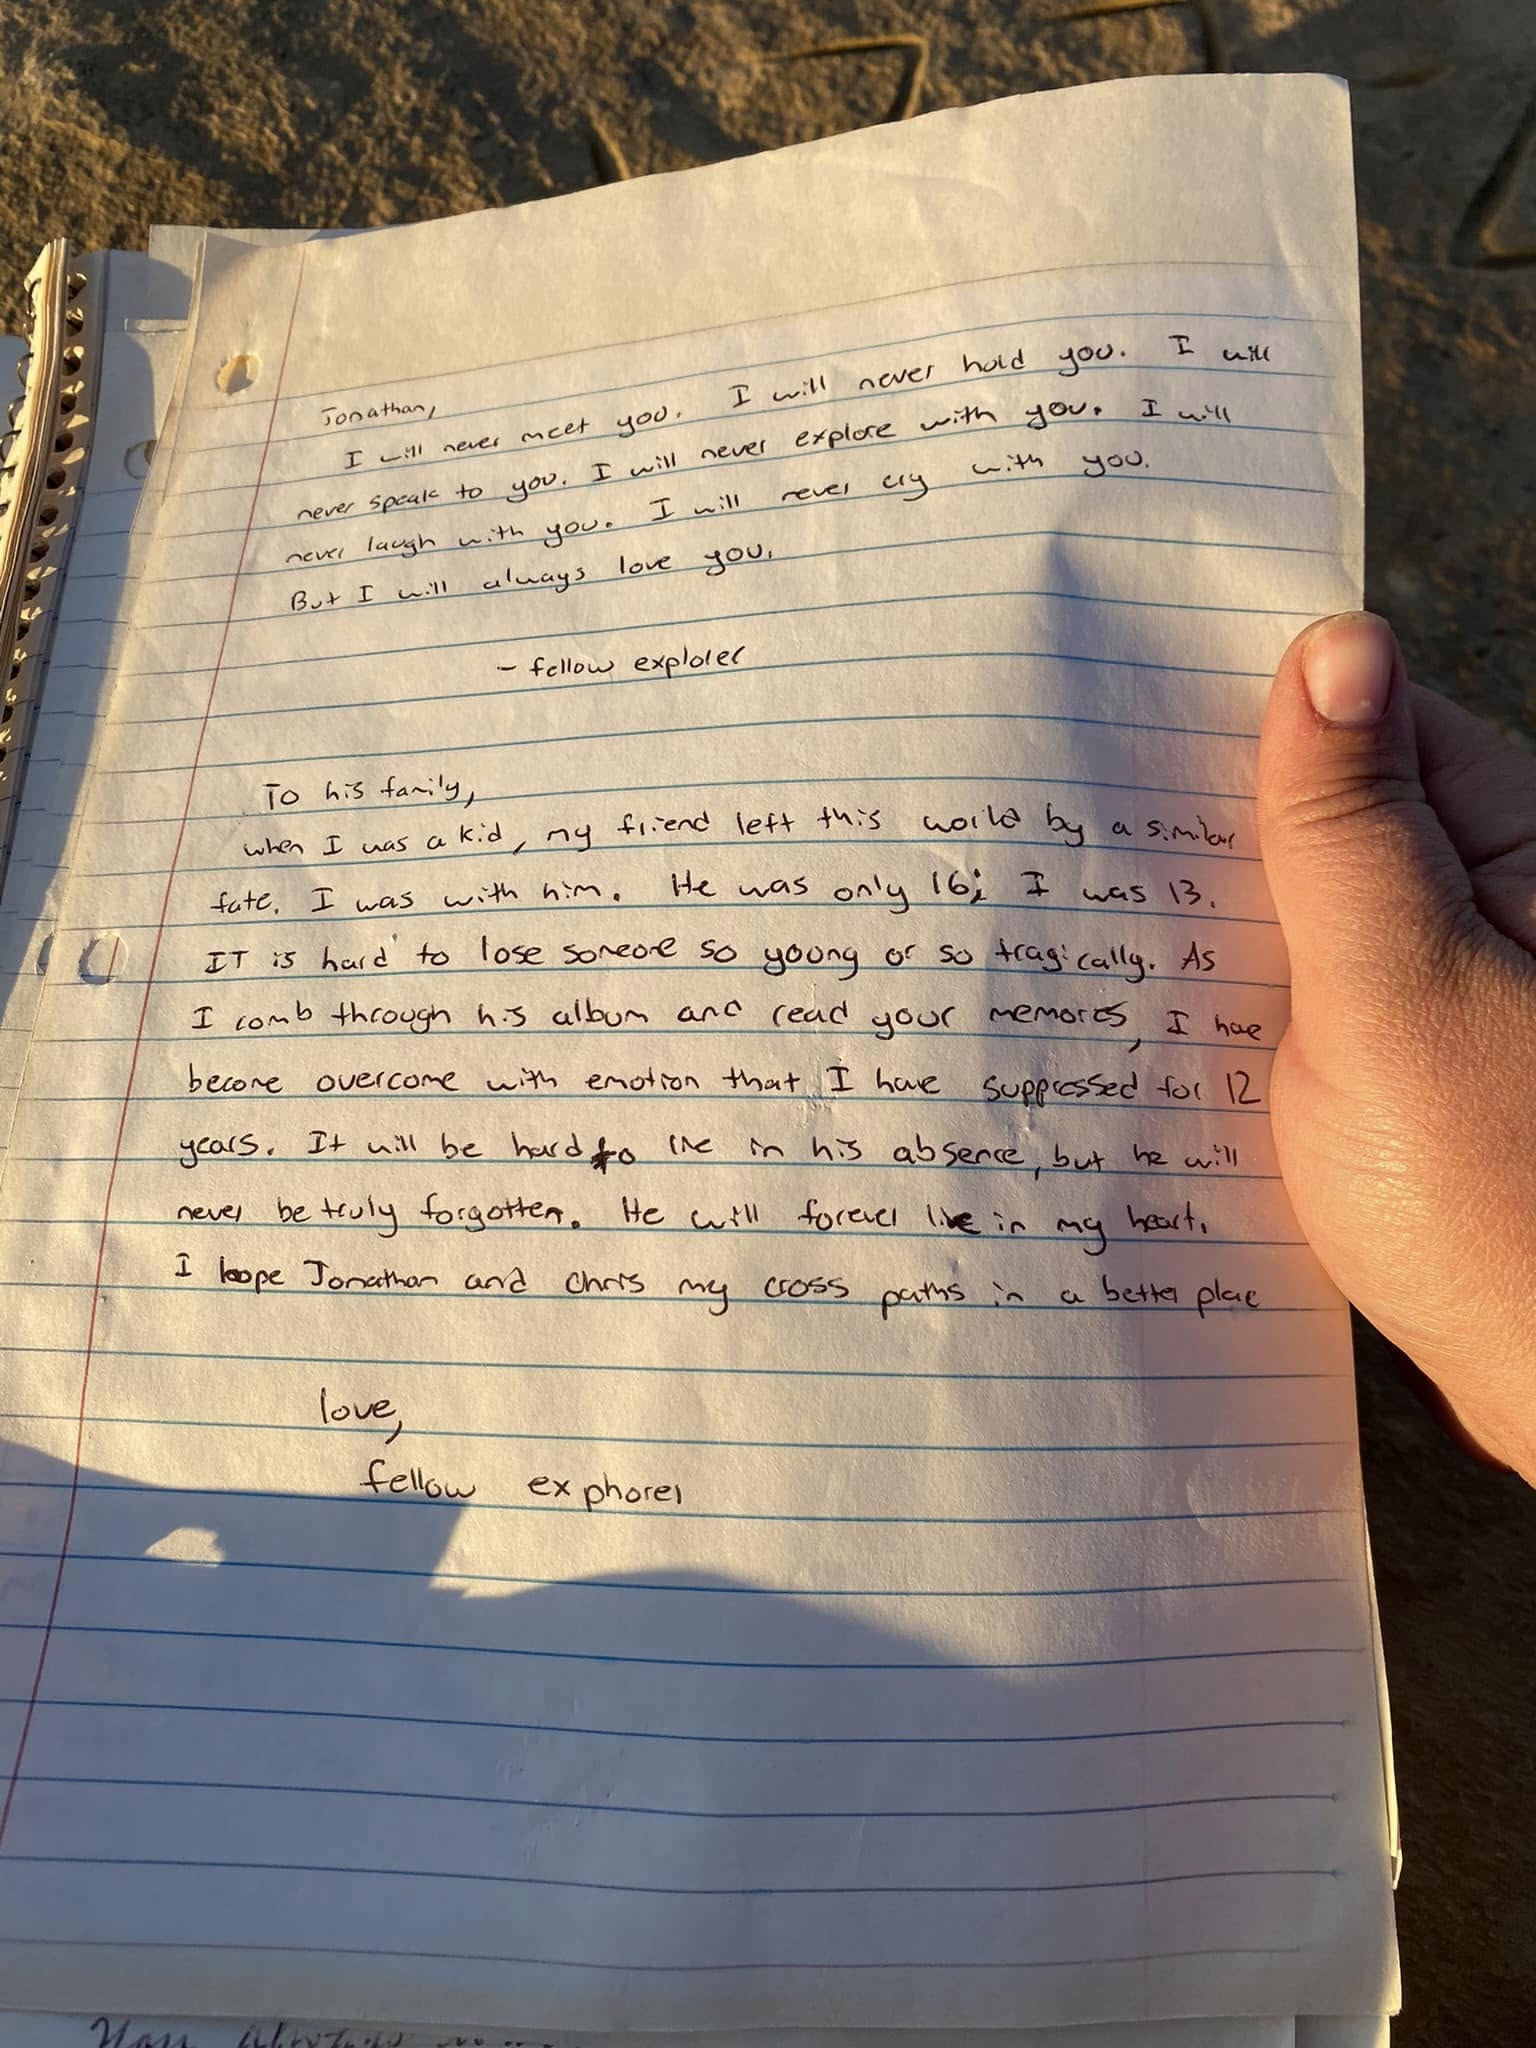 Jonathan,
I will never meet you. I will never hold you. I will
never speak to you. I will never explore with you. I will
never laugh with you. I will never cry with you.
But I will always love you.
- fellow explorer
To his family,
when I was a kid, my friend left this world by a similar
fate. I was with him. He was only 16; I was 13.
IT is hard to lose someone so young or so tragically. As
I comb through his album and read your memories, I have
become overcome with emotion that I have suppressed for 12
years. It will be hard to live in his absence, but he will
never be truly forgotten. He will forever live in my heart.
I hope Jonathan and Chris my cross paths in a better place
love,
fellow exphorer
You